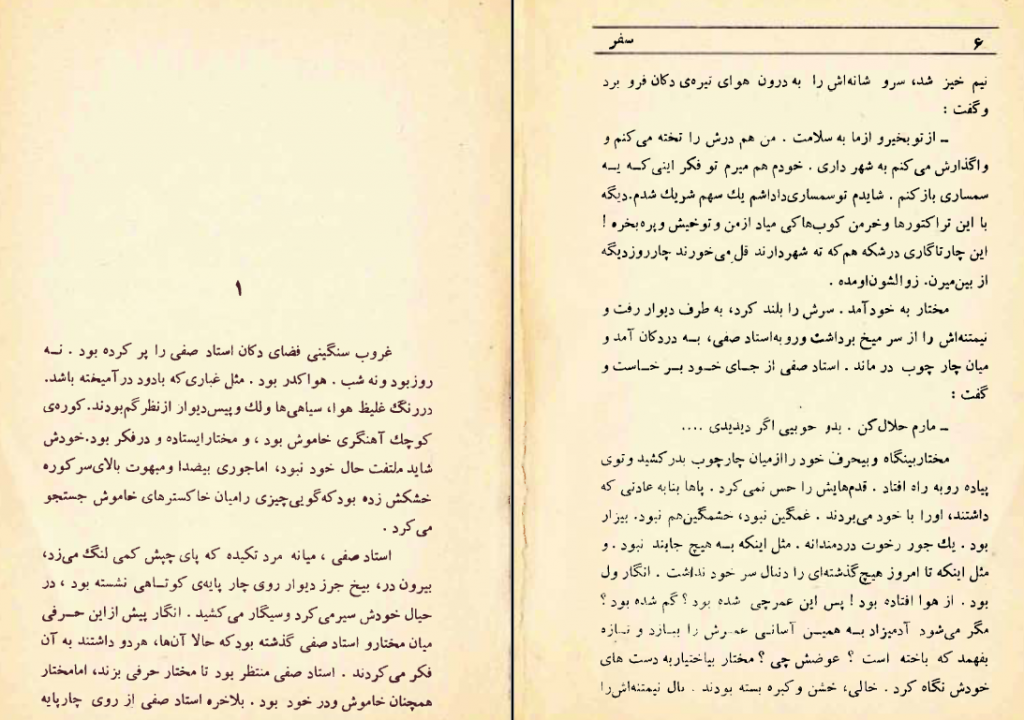 ۱
غروب سنگینی فضای دکان استاد صفی را پر کرده بود . نـه
روزبود ونه شب . هواکدر بود . مثل غباری‌که بادود درآمیخته باشد.
دررنگ غلیظ هوا، سیاهی‌ها ولك وپیس‌دیوار ازنظرگم‌بودند. کوره‌ی
کوچك آهنگری خاموش بود ، و مختارایستاده و درفکر بود.خودش
شاید ملتفت حال خود نبود، اماجوری بیصدا ومبهوت بالای‌سرکوره
خشکش زده بودکه‌گویی‌چیزی رامیان خاکسترهای خاموش جستجو
می‌کرد .
استاد صفی ، میانه مرد تکیده که پای چپش کمی لنگ می‌زد،
بیرون در، بیخ جرز دیوار روی چار پایه‌ی کوتـاهی نشسته بود ، در
خیال خودش سیرمی‌کرد وسیگار می‌کشید . انگار پیش ازاین حـرفی
میان مختارو استاد صفی گذشته بودکه حالا آن‌ها، هردو داشتند به آن
فکر می‌کردند . استاد صفی منتظر بود تا مختار حرفی بزند، امامختار
همچنان خاموش ودر خود بود . بلاخره استاد صفی از روی چارپایه
۶ سفر
نیم خیز شد، سرو شانه‌اش را به درون هوای تیره‌ی دکان فرو برد
وگفت :
ـ ازتوبخیرو ازما به سلامت . من هم درش را تخته می‌کنم و
واگذارش می‌کنم به شهر داری . خودم هم میرم تو فکر اینی کـه یـه
سمساری بازکنم . شایدم توسمساری‌داداشم یك سهم شریك شدم.دیگه
با این تراکتورها وخرمن کوب‌هاکی میاد ازمن وتوخیش وپره‌بخره !
این چارتاگاری درشکه هم‌که ته شهردارند قل می‌خورند چارروزدیگه
از بین‌میرن. زوالشون‌اومده .
مختار به خودآمد . سرش را بلند کرد، به طرف دیوار رفت و
نیمتنه‌اش را از سر میخ برداشت وروبه‌استاد صفی، بـه دردکان آمد و
میان چار چوب در ماند . استاد صفی از جـای خـود بـر خـاست و
گفت :
ـ مارم حلال‌کن . بدو خوبیی اگر دیدیدی ....
مختاربینگاه وبیحرف خود راازمیان چارچوب بدرکشید وتوی
پیاده روبه راه افتاد . قدم‌هایش را حس نمی‌کرد . پاها بنابه عادتی که
داشتند، اورا با خود می‌بردند . غمگین نبود، خشمگین‌هم نبود. بیزار
بود . یك جور رخوت دردمندانه . مثل اینکه بـه هیچ جابند نبود . و
مثل اینکه تا امروز هیچ‌گذشته‌ای را دنبال سر خود نداشت . انگار ول
بود . از هوا افتاده بود ! پس این عمرچی شده بود ؟ گم شده بود ؟
مگر می‌شود آدمیزاد بـه همیـن آسانـی عمـرش را ببـازد و تـازه
بفهمد که باخته است ؟ عوضش چی ؟ مختار بیاختیاربه دست های
خودش نگاه کرد . خالی، خشن وکبره بسته بودند . بال نیمتنه‌اش‌را